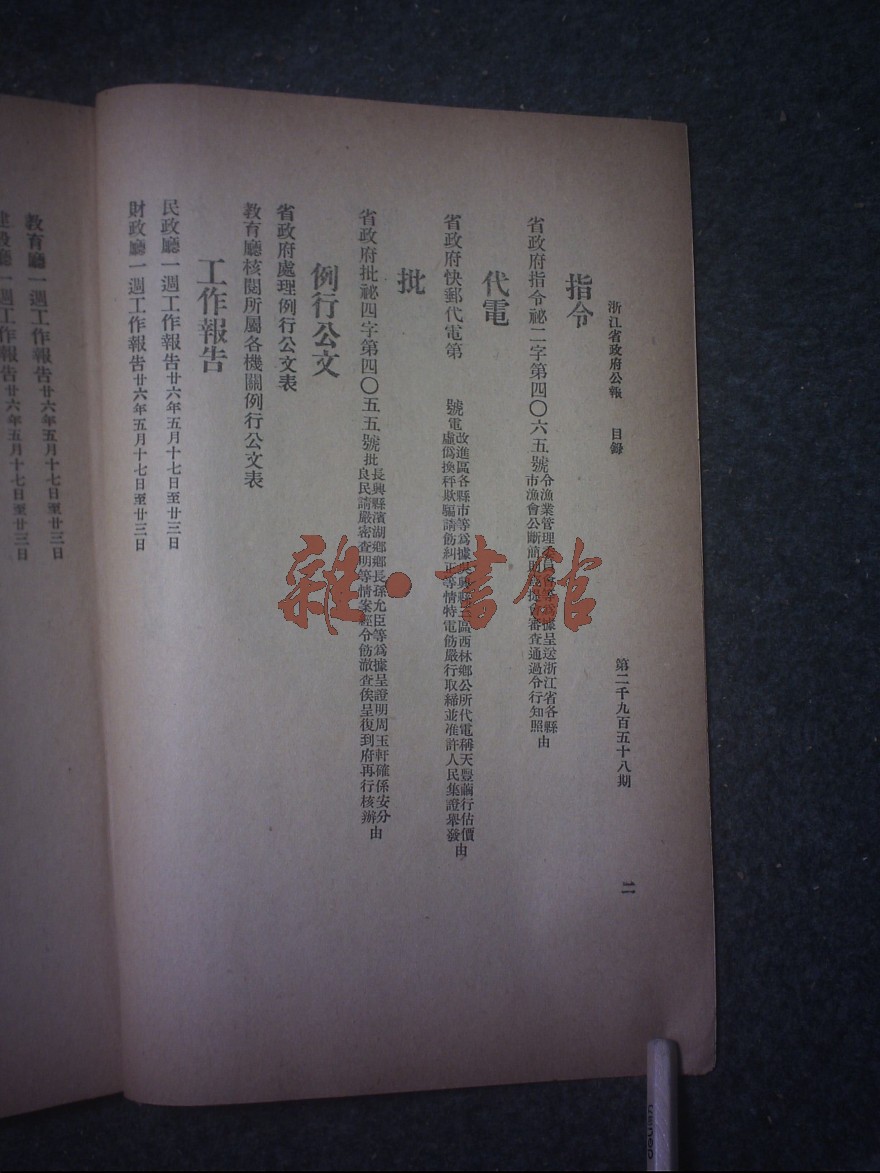 浙江省政府公報　目錄　第二千九百五十八期　二
指令
省政府指令祕二字第四〇六五號令漁業管理委員會等為據呈送浙江省各縣
市漁會公斷簡明提會審查通過令行知照由
代電
省政府快郵代電第　號電改進區各縣市等為據吳興縣區西林鄉公所代電稱天豐繭行估價
虛偽換秤欺騙請飭糾正等情特電飭嚴行取締並准許人民集證舉發由
批
省政府批祕四字第四〇五五號批長興縣濱湖鄉鄉長孫允臣等為據呈證明周玉軒確係安分
良民請嚴密查明等情案經令飭澈查俟呈復到府再行核辦由
例行公文
省政府處理例行公文表
教育廳核閱所屬各機關例行公文表
工作報告
民政廳一週工作報告廿六年五月十七日至廿三日
財政廳一週工作報告廿六年五月十七日至廿三日
教育廳一週工作報告廿六年五月十七日至廿三日
建設廳一週工作報告廿六年五月十七日至廿三日
雜·書館